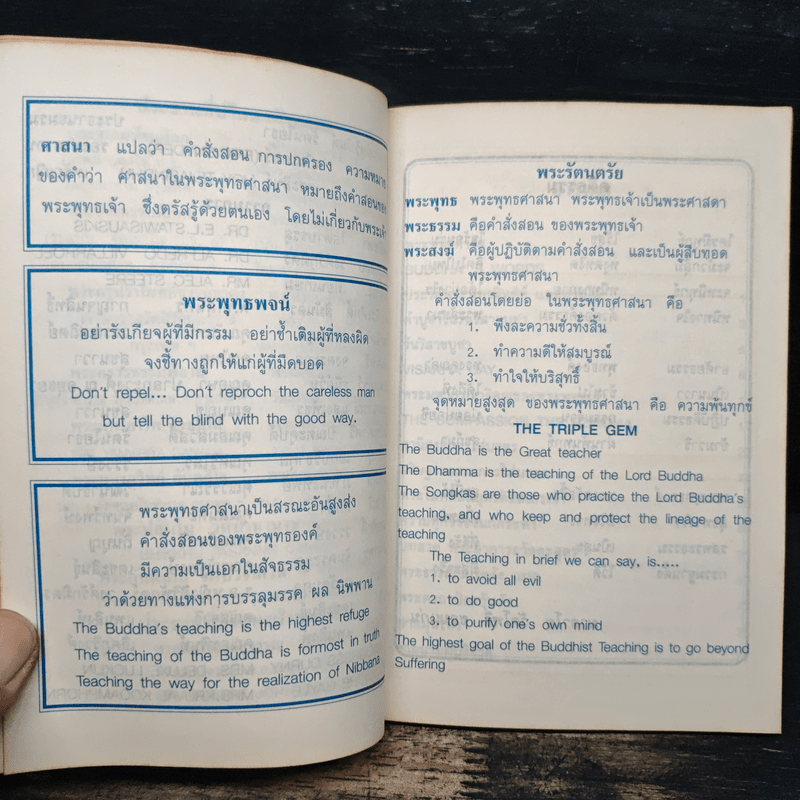 ศาสนา แปลว่า คำสั่งสอน การปกครอง ความหมาย
ของคำว่า ศาสนาในพระพุทธศาสนา หมายถึงคำสอนของ
พระพุทธเจ้า ซึ่งตรัสรู้ด้วยตนเอง โดยไม่เกี่ยวกับพระเจ้า
พระพุทธพจน์
อย่ารังเกียจผู้ที่มีกรรม อย่าซ้ำเติมผู้ที่หลงผิด
จงชี้ทางถูกให้แก่ผู้ที่มืดบอด
Don't repel... Don't reproch the careless man
but tell the blind with the good way.
พระพุทธศาสนาเป็นสรณะอันสูงส่ง
คำสั่งสอนของพระพุทธองค์
มีความเป็นเอกในสัจธรรม
ว่าด้วยทางแห่งการบรรลุมรรค ผล นิพพาน
The Buddha's teaching is the highest refuge
The teaching of the Buddha is formost in truth
Teaching the way for the realization of Nibbana
พระรัตนตรัย
พระพุทธ พระพุทธศาสนา พระพุทธเจ้าเป็นพระศาสดา
พระธรรม คือคำสั่งสอน ของพระพุทธเจ้า
พระสงฆ์ คือผู้ปฏิบัติตามคำสั่งสอน และเป็นผู้สืบทอด
พระพุทธศาสนา
คำสั่งสอนโดยย่อ ในพระพุทธศาสนา คือ
1. พึงละความชั่วทั้งสิ้น
2. ทำความดีให้สมบูรณ์
3. ทำใจให้บริสุทธิ์
จุดหมายสูงสุด ของพระพุทธศาสนา คือ ความพ้นทุกข์
THE TRIPLE GEM
The Buddha is the Great teacher
The Dhamma is the teaching of the Lord Buddha
The Songkas are those who practice the Lord Buddha's
teaching, and who keep and protect the lineage of the
teaching
The Teaching in brief we can say, is.....
1. to avoid all evil
2. to do good
3. to purify one's own mind
The highest goal of the Buddhist Teaching is to go beyond
Suffering